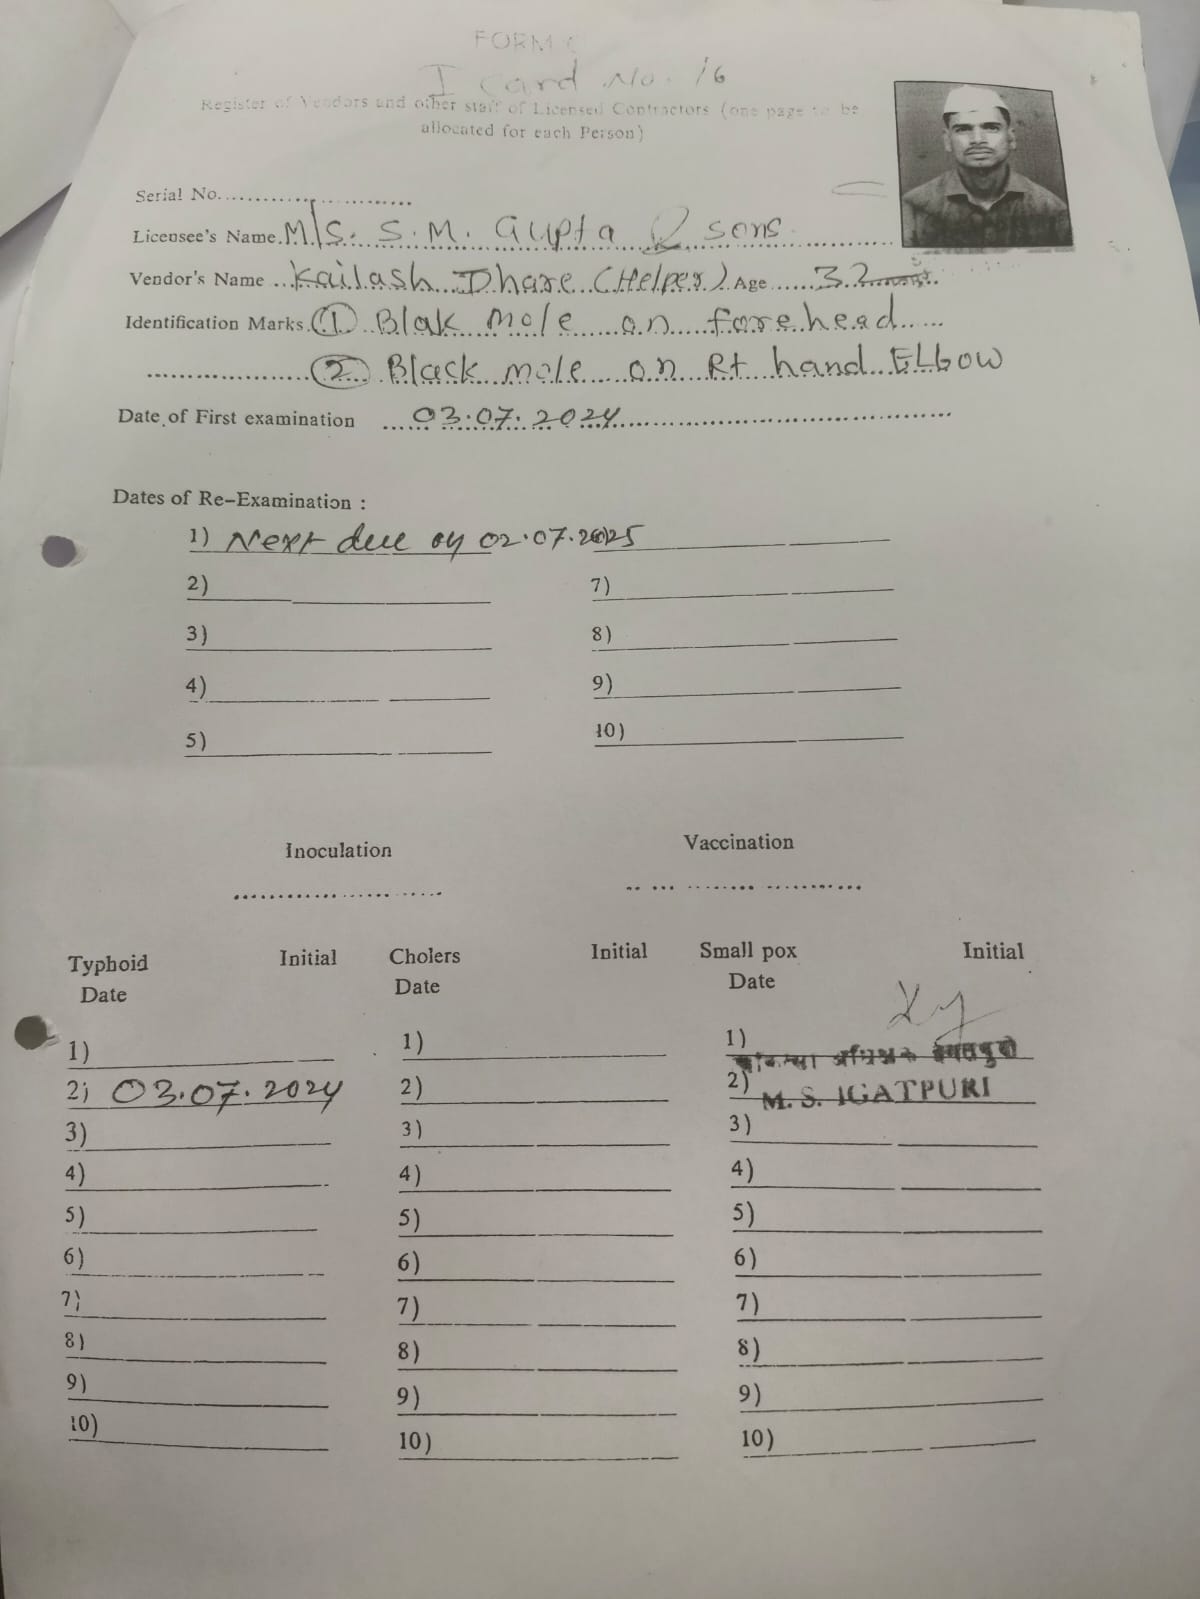 FORM C
I card No. 16
Register of Vendors and other staff of Licensed Contractors (one page to be
allocated for each Person)
Serial No..................................
Licensee's Name. M/s. S. M. Gupta & sons
Vendor's Name ...Kailash Dhare (Helper) Age ......32
Identification Marks. (1) Blak mole on forehead
(2) Black mole on Rt hand ELbow
Date of First examination 03.07.2024
Dates of Re-Examination :
1) Next due on 02.07.2025
2) 7)
3) 8)
4) 9)
5) 10)
Inoculation Vaccination
Typhoid Initial Cholers Initial Small pox Initial
Date Date Date
1) 1) 1)
2) 03.07.2024 2) 2) M. S. IGATPURI
3) 3) 3)
4) 4) 4)
5) 5) 5)
6) 6) 6)
7) 7) 7)
8) 8) 8)
9) 9) 9)
10) 10) 10)